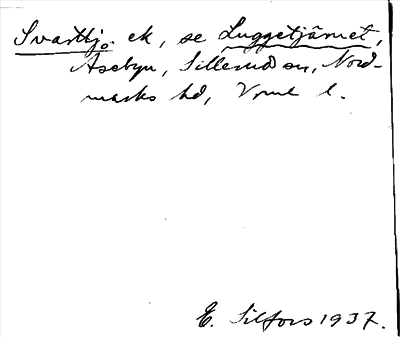 Svarttj. ek, se Luggetjärnet,
Åsebyn, Sillerud sn, Nord-
marks hd, Vrml l.
E. Silfors 1937.